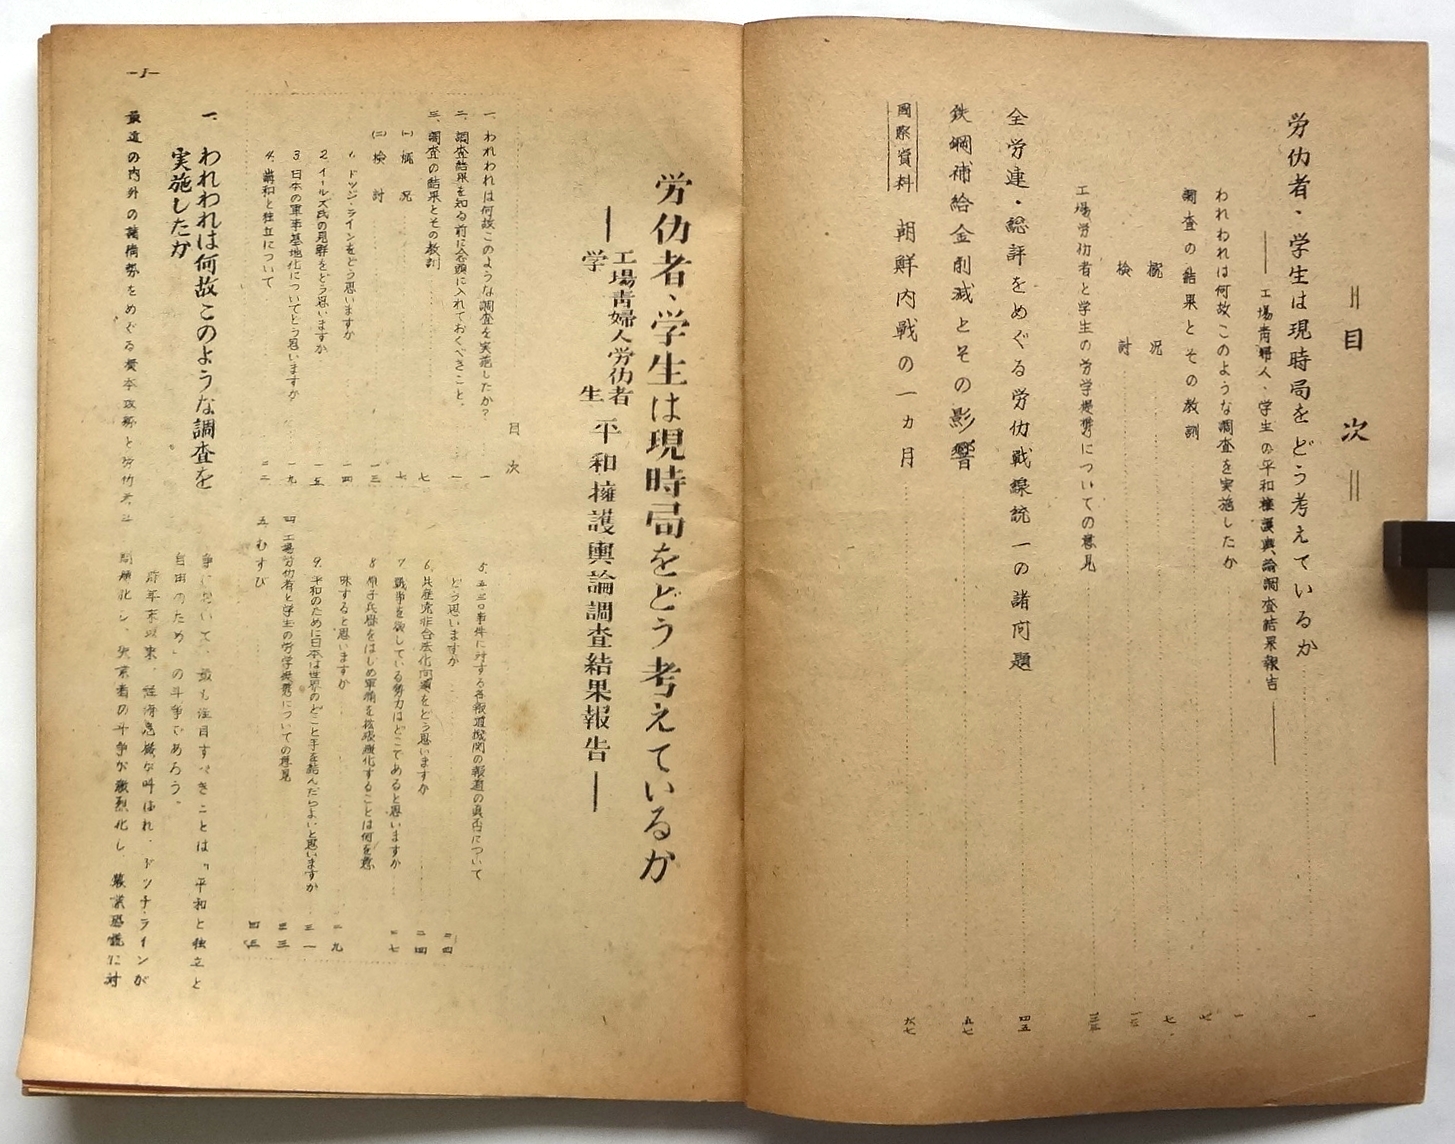 ＝目次＝
労仂者・学生は現時局をどう考えているか……一
――工場青婦人・学生の平和擁護輿論調査結果報告――
われわれは何故このような調査を実施したか……一
調査の結果とその教訓……七
概況……七
検討……一三
工場労仂者と学生の労学提携についての意見……三三
全労連・総評をめぐる労仂戦線統一の諸問題……四五
鉄鋼補給金削減とその影響……五七
國際資料 朝鮮内戦の一ヵ月……六七
労仂者、学生は現時局をどう考えているか
――工場青婦人労仂者 学生 平和擁護輿論調査結果報告――
目次
一、われわれは何故このような調査を実施したか？……一
二、調査結果を知る前に念頭に入れておくべきこと、……一
三、調査の結果とその教訓……七
(一) 概況……七
(二) 検討……一三
1、ドッジ・ラインをどう思いますか……一四
2、イールズ氏の見解をどう思いますか……一五
3、日本の軍事基地化についてどう思いますか……一九
4、講和と独立について……二二
5、五・三〇事件に対する各報道機関の報道の真否について
どう思いますか……二四
6、共産党非合法化問題をどう思いますか……二四
7、戦争を欲している勢力はどこであると思いますか……二七
8、原子兵器をはじめ軍備を
味すると思いますか……二九
9、平和のために日本は世界のどこと手を結んだらよいと思いますか……三一
四、工場労仂者と学生の労学提携についての意見……三三
五、むすび……四五
一、われわれは何故このような調査を
実施したか
最近の内外の諸情勢をめぐる資本攻勢と労仂者斗
争において、最も注目すべきことは「平和と独立と
自由のため」の斗争であろう。
昨年末以来、経済危機が叫ばれ、ドッヂ・ラインが
問題化し、失業者の斗争が激烈化し、
—1—